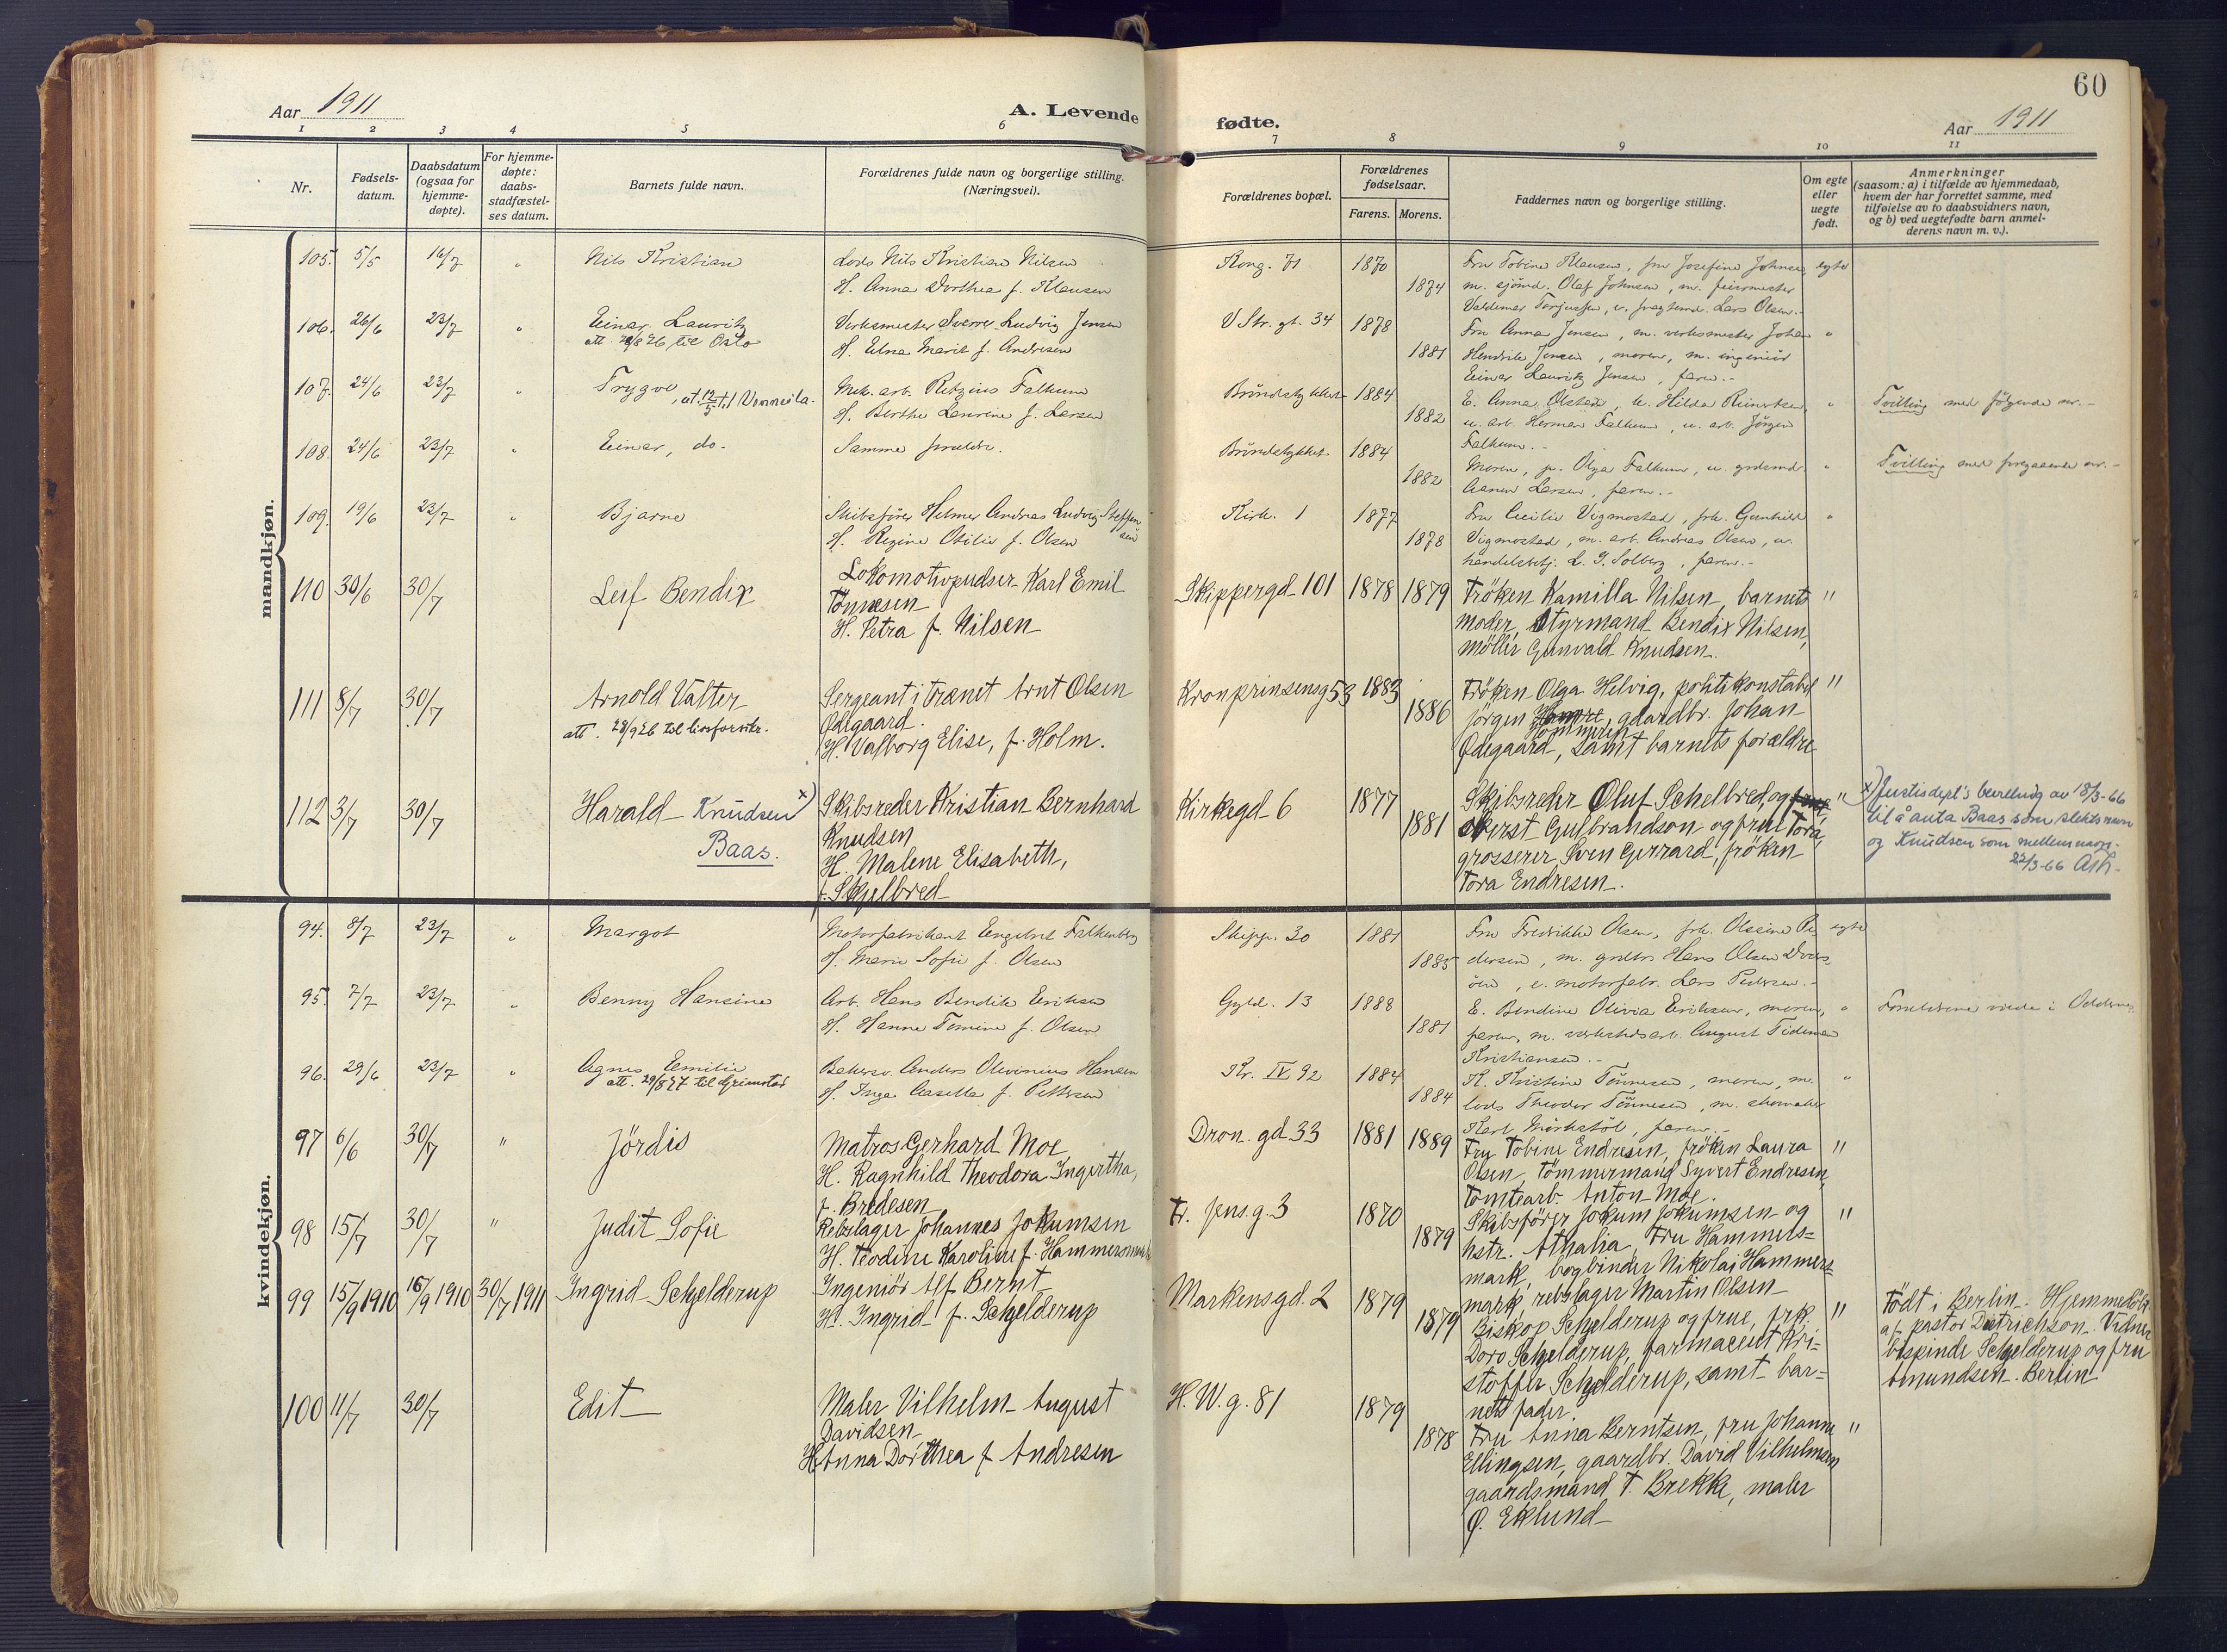 60
Aar 1911
A. Levende
fødte.
Aar 1911
1 2 3 4 5 6 7 8 9 10 11
Nr.
Fødsels-
datum.
Daabsdatum
(ogsaa for
hjemme-
døpte).
For hjemme-
døpte:
daabs-
stadfæstel-
ses datum.
Barnets fulde navn.
Forældrenes fulde navn og borgerlige stilling.
(Næringsvei).
Forældrenes bopæl.
Forældrenes
fødselsaar.
Farens. Morens.
Faddernes navn og borgerlige stilling.
Om egte
eller
uegte
født.
Anmerkninger
(saasom: a) i tilfælde av hjemmedaab,
hvem der har forrettet samme, med
tilføielse av to daabsvidners navn,
og b) ved uegtefødte barn anmel-
derens navn m. v.).
mandkjøn.
105. 5/5 16/7 " Nils Kristian
Lods Nils Kristian Nilsen
H. Anna Dorthea f. Klausen
Kong. 71 1870 1874
Fru Tobine Klausen, fru Josefine Johnsen egte
m. sjömd. Olaf Johnsen, m. feiermester
Valdemar Torjussen, u. fragtemd. Lars Olsen.-
106. 26/6 23/7 " Einar Lauritz
att. 28/8 26 til Oslo
Verksmester Sverre Ludvig Jensen
H. Edna Marit f. Andresen
V Str. gt. 34 1878 1881
Fru Anna Jensen, m. verksmester Johan "
Hendrik Jensen, moren, m. ingeniör
Einar Lauritz Jensen, faren.-
107. 24/6 23/7 " Trygve, at. 12/5 til Vennesla.
Mek. arb. Retzius Falkum
H. Berthe Laurine f. Larsen
Bründstykket 1884 1882
E. Anna Olstad, u. Hilda Reinertsen "
u. arb. Herman Falkum, u. arb. Jörgen
Falkum.-
Tvilling med følgende nr.-
108. 24/6 23/7 " Einar, do.
Samme forældre.
Bründstykket 1884 1882
Moren, p. Olga Falkum, u. grdsmd. "
Aanen Larsen, faren.-
Tvilling med foregaaende nr.-
109. 19/6 23/7 " Bjarne
Skibsfører Helmer Andreas Ludvig Steffen
sen
H. Regine Otilie f. Olsen
Kirk. 1 1877 1878
Fru Cecilie Vigmostad, frk. Gunhild "
Vigmostad, m. arb. Andreas Olsen, u.
handelsbetj. L. G. Solberg, faren.-
110 30/6 30/7 Leif Bendix
Lokomotivpudser Karl Emil
Tönnesen
H. Petra f. Nilsen
Skippergd 101 1878 1879
Fröken Kamilla Nilsen, barnets "
moder, Styrmand Bendix Nilsen,
möller Gunvald Knudsen.
111 8/7 30/7 Arnold Valter
att. 28/9 26 til livsforsikr.
Sergeant i Trænet Arnt Olsen
Ødegaard.
H. Valborg Elise, f. Holm.
Kronprinsensg 53 1883 1886
Fröken Olga Helvig, politikonstabel "
Jörgen Hommen, gaardbr. Johan
Ødegaard, samt barnets forældre
112 3/7 30/7 Harald Knudsen x)
Baas.
Skibsreder Kristian Bernhard
Knudsen
H. Malene Elisabeth,
f. Skjelbred
Kirkegd 6 1877 1881
Skibsreder Oluf Schelbred, og frue "
Oberst Gulbrandson og frue Tora,
grosserer Sven Gerrard, fröken
Tora Endresen.
x) Justisdept's bevelling av 18/3-66
til å anta Baas som slektsnavn
og Knudsen som mellemnavn.
22/3-66 Ath.
kvindekjøn.
94. 8/7 23/7 " Margot
Motorfabrikant Engebret Falkenberg
H. Marie Sofie f. Olsen
Skipp. 30 1881 1885
Fru Fredrikke Olsen, frk. Olsine Pe egte
dersen, m. grdbr. Hans Olsen Dvers-
öen, u. motorfabr. Lars Pedersen.-
95. 7/7 23/7 " Benny Hansine
Arb. Hans Bendik Eriksen
H. Hanne Tomine f. Olsen
Gyld. 13 1888 1881
E. Bendine Olivia Eriksen, moren, "
faren, m. verkstedsarb. August Tideman
Kristiansen.-
Forældrene viede i Oddernes
96. 29/6 23/7 " Agnes Emilie
att. 29/8 27 til Grimstad
Bakersv. Anders Olevinius Hansen
H. Inga Casella f. Pettersen
Kr. IV 92 1884 1884
K. Kristine Tönnesen, moren, m. "
lods Theodor Tönnesen, m. skomaker
Karl Mörkstöl, faren.-
97 6/6 30/7 " Jördis
Matros Gerhard Moe,
H. Ragnhild Theodora Ingertha,
f. Bredesen
Dron. gd 33 1881 1889
Fru Tobine Endresen, fröken Laura "
Olsen, tömmermand Syvert Endresen,
Tomtearb. Anton Moe.
98 15/7 30/7 " Judit Sofie
Rebslager Johannes Jokumsen
H. Teodine Karoline f. Hammersmark
Fr. jens. g. 3 1870 1879
Skibsförer Jokum Jokumsen og "
hstr. Athalia, Fru Hammers=
mark, bogbinder Nikolai Hammers=
mark, rebslager Martin Olsen
99 15/9 1910 16/9 1910 30/7 1911 Ingrid Schjelderup
Ingeniör Alf Bernt
H. Ingrid f. Schjelderup
Markensgd. 2 1879 1879
Biskop Schjelderup og frue, frk. "
Doro Schjelderup, farmaceut Kri=
stoffer Schjelderup, samt bar=
nets fader.
Födt i Berlin. Hjemmedöbt
af pastor Dietrichson. Vidner
bispinde Schjelderup og fru
Amundsen. Berlin
100 11/7 30/7 Edit
Maler Vilhelm August
Davidsen
H. Anna Dorthea f Andresen
H. W. g. 81 1879 1878
Fru Anna Berntsen, fru Johanne "
Ellingsen, gaardbr. David Vilhelmsen
gaardsmand T. Brekke, maler
Ø. Eklund